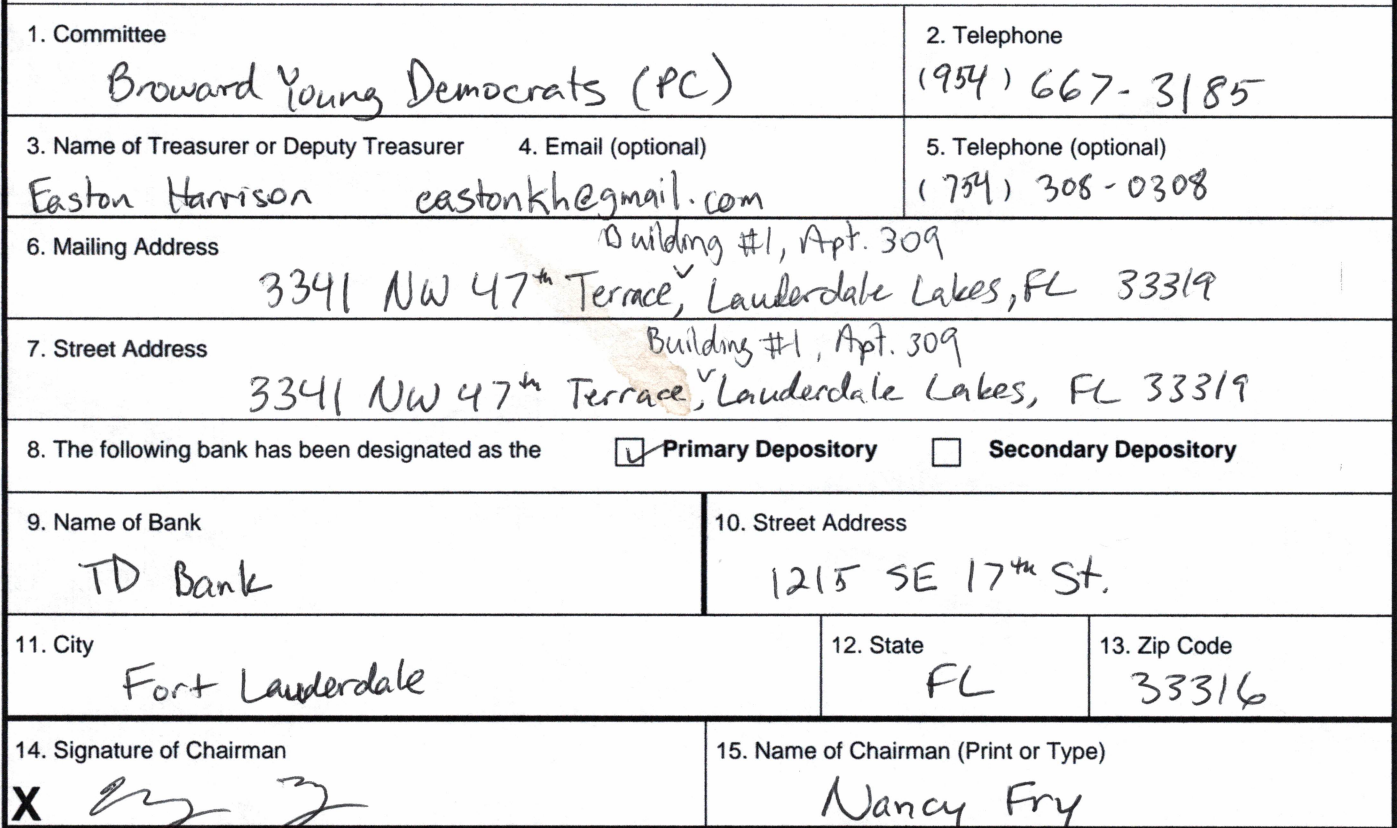 1. Committee
Broward Young Democrats (PC)
2. Telephone
(954) 667-3185
3. Name of Treasurer or Deputy Treasurer
Easton Harrison
4. Email (optional)
eastonkh@gmail.com
5. Telephone (optional)
(754) 308-0308
6. Mailing Address
Building #1, Apt. 309
3341 NW 47th Terrace, Lauderdale Lakes, FL 33319
7. Street Address
Building #1, Apt. 309
3341 NW 47th Terrace, Lauderdale Lakes, FL 33319
8. The following bank has been designated as the Primary Depository Secondary Depository
9. Name of Bank
TD Bank
10. Street Address
1215 SE 17th St.
11. City
Fort Lauderdale
12. State
FL
13. Zip Code
33316
14. Signature of Chairman
X
15. Name of Chairman (Print or Type)
Nancy Fry